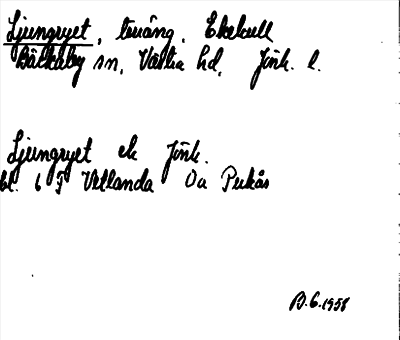 Ljungryet, terräng. Ekekull
Bäckaby sn, Västra hd, Jönk. l.
Ljungryet ek Jönk.
bl. 6 F Vetlanda Oa Pukås
B.G. 1958